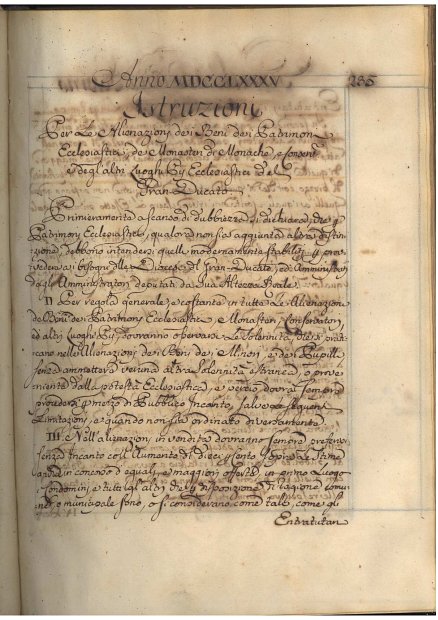 Anno MDCCLXXXV 235
Istruzioni
Per Le Alienazioni dei Beni dei Patrimoni
Ecclesiastici, de Monasteri di Monache, e
e degli altri Luoghi Pij Ecclesiastici del
Gran Ducato
Primieramente a scanso di dubbiezze si dichiara, che p
Patrimonj Ecclesiastici, qualora non sia aggiunta altra
debbono intendersi quelli modernamente stabiliti p
ai bisogni delle Diocesi del Gran-Ducato, ed Amministrati
dagl' Amministratori deputati da Sua Altezza Reale.
II Per regola generale, e costante in tutte Le Alienazioni
de Beni dei Patrimonj Ecclesiastici, Monasteri, Conservatorj,
ed altri Luoghi Pij, dovranno osservarsi Le Solennità, che si prati
cano nelle Alienazioni dei Beni dei Minori, e dei Pupilli
senza ammettere veruna altra Solennità estranea, o prove
niente dalla potestà Ecclesiastica, e perciò dovrà sempre
procedersi p mezzo di Pubblico Incanto, salve le seguenti
Limitazioni, e quando non sia ordinato diversamente.
III Nell'alienazioni in vendita dovranno sempre preferirsi
senza Incanto coll'Aumento di dieci p cento sopra Le Stime
ed in concorso d'eguali, e maggiori offerte, in primo Luogo
i Condomini, e tutti gl'altri che p disposizione di ragione comu
ne, o municipale sono, o si considerano come tali, come gli
Entratutari